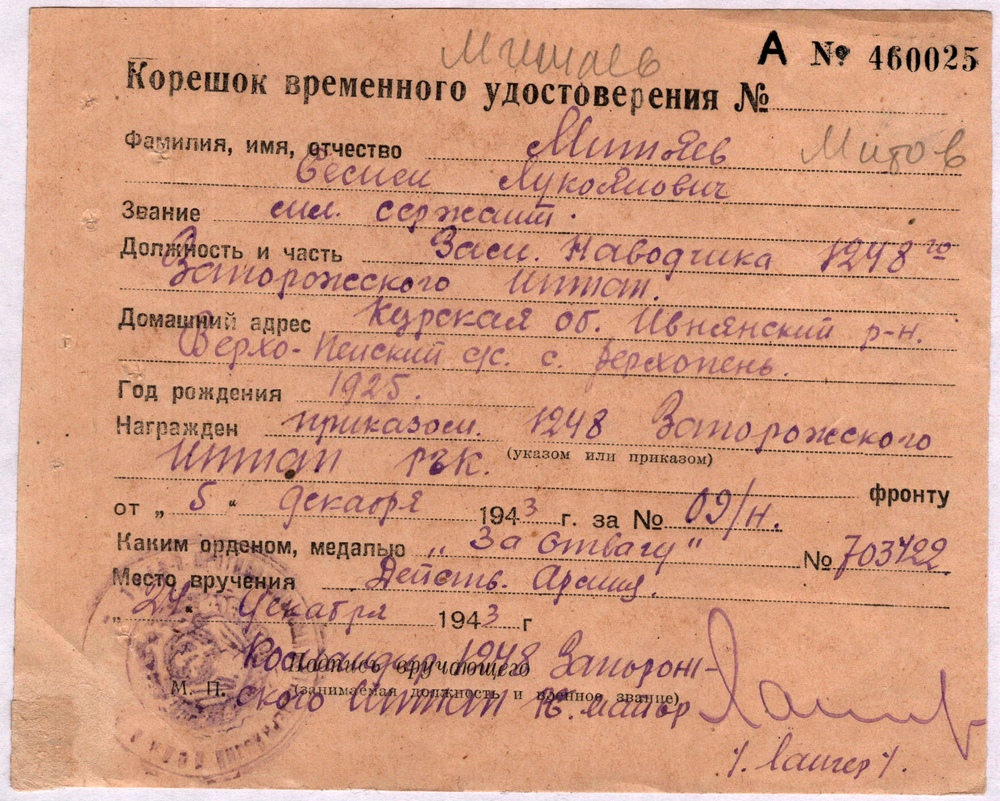 А № 460025
Корешок временного удостоверения №
Фамилия, имя, отчество Митяев Митов
Лукоянович
Звание мл. сержант.
Должность и часть Зам. Наводчика 1248го
Запорожского иптап.
Домашний адрес Курская об. Ивнянский р-н.
Верхо-Пенский с/с. с. Верхопень.
Год рождения 1925.
Награжден приказом. 1248 Запорожского
(указом или приказом)
иптап ргк.
фронту
от „ 5 “ декабря 1943 г. за № 09/н.
Каким орденом, медалью „За Отвагу“ № 703422
Место вручения Действ. Армия.
„ 24 “ декабря 1943 г
Командир 1248 Запорож-
Подпись вручающего
ского иптап майор
(занимаемая должность и военное звание)
М. П.